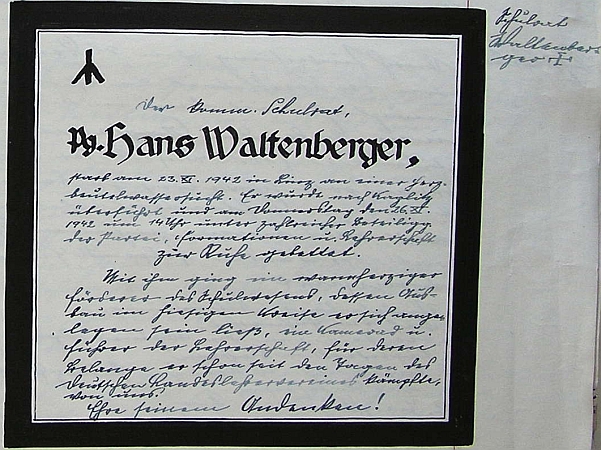 Der komm. Schulrat,
Pg. Hans Waltenberger,
starb am 23. XI. 1942 in Linz an einer Herz-
beutelwassersucht. Er wurde nach Kaplitz
überführt und am Donnerstag den 26. XI.
1942 um 14 Uhr unter zahlreicher Beteiligg.
der Partei, Formationen u. Lehrerschaft
zur Ruhe gebettet.
Mit ihm ging ein warmherziger
Förderer des Schulwesens, dessen Aus-
bau im hiesigen Kreise er sich ange-
legen sein ließ, ein Kamerad u.
Führer der Lehrerschaft, für deren
Belange er schon seit den Tagen des
Deutschen Landeslehrervereines kämpfte,
von uns.
Ehre seinem Andenken!
Schulrat
Waltenber
ger †